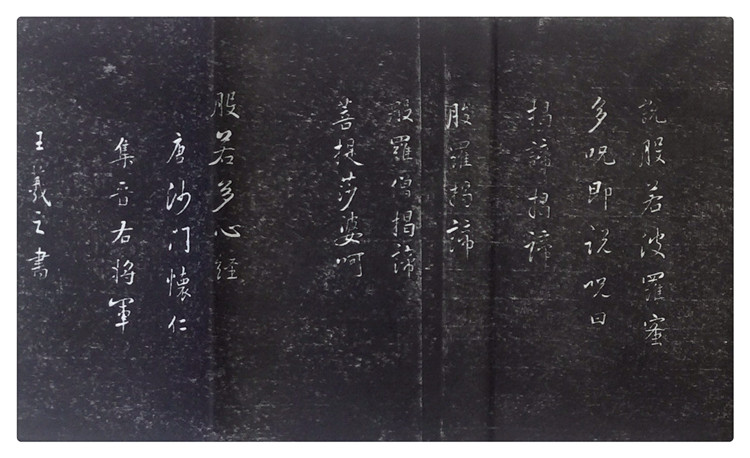 說般若波羅蜜
多呪即說呪曰
揭諦揭諦
般羅揭諦
般羅僧揭諦
菩提莎婆呵
般若多心經
唐沙门懷仁
集晋右將軍
王羲之書